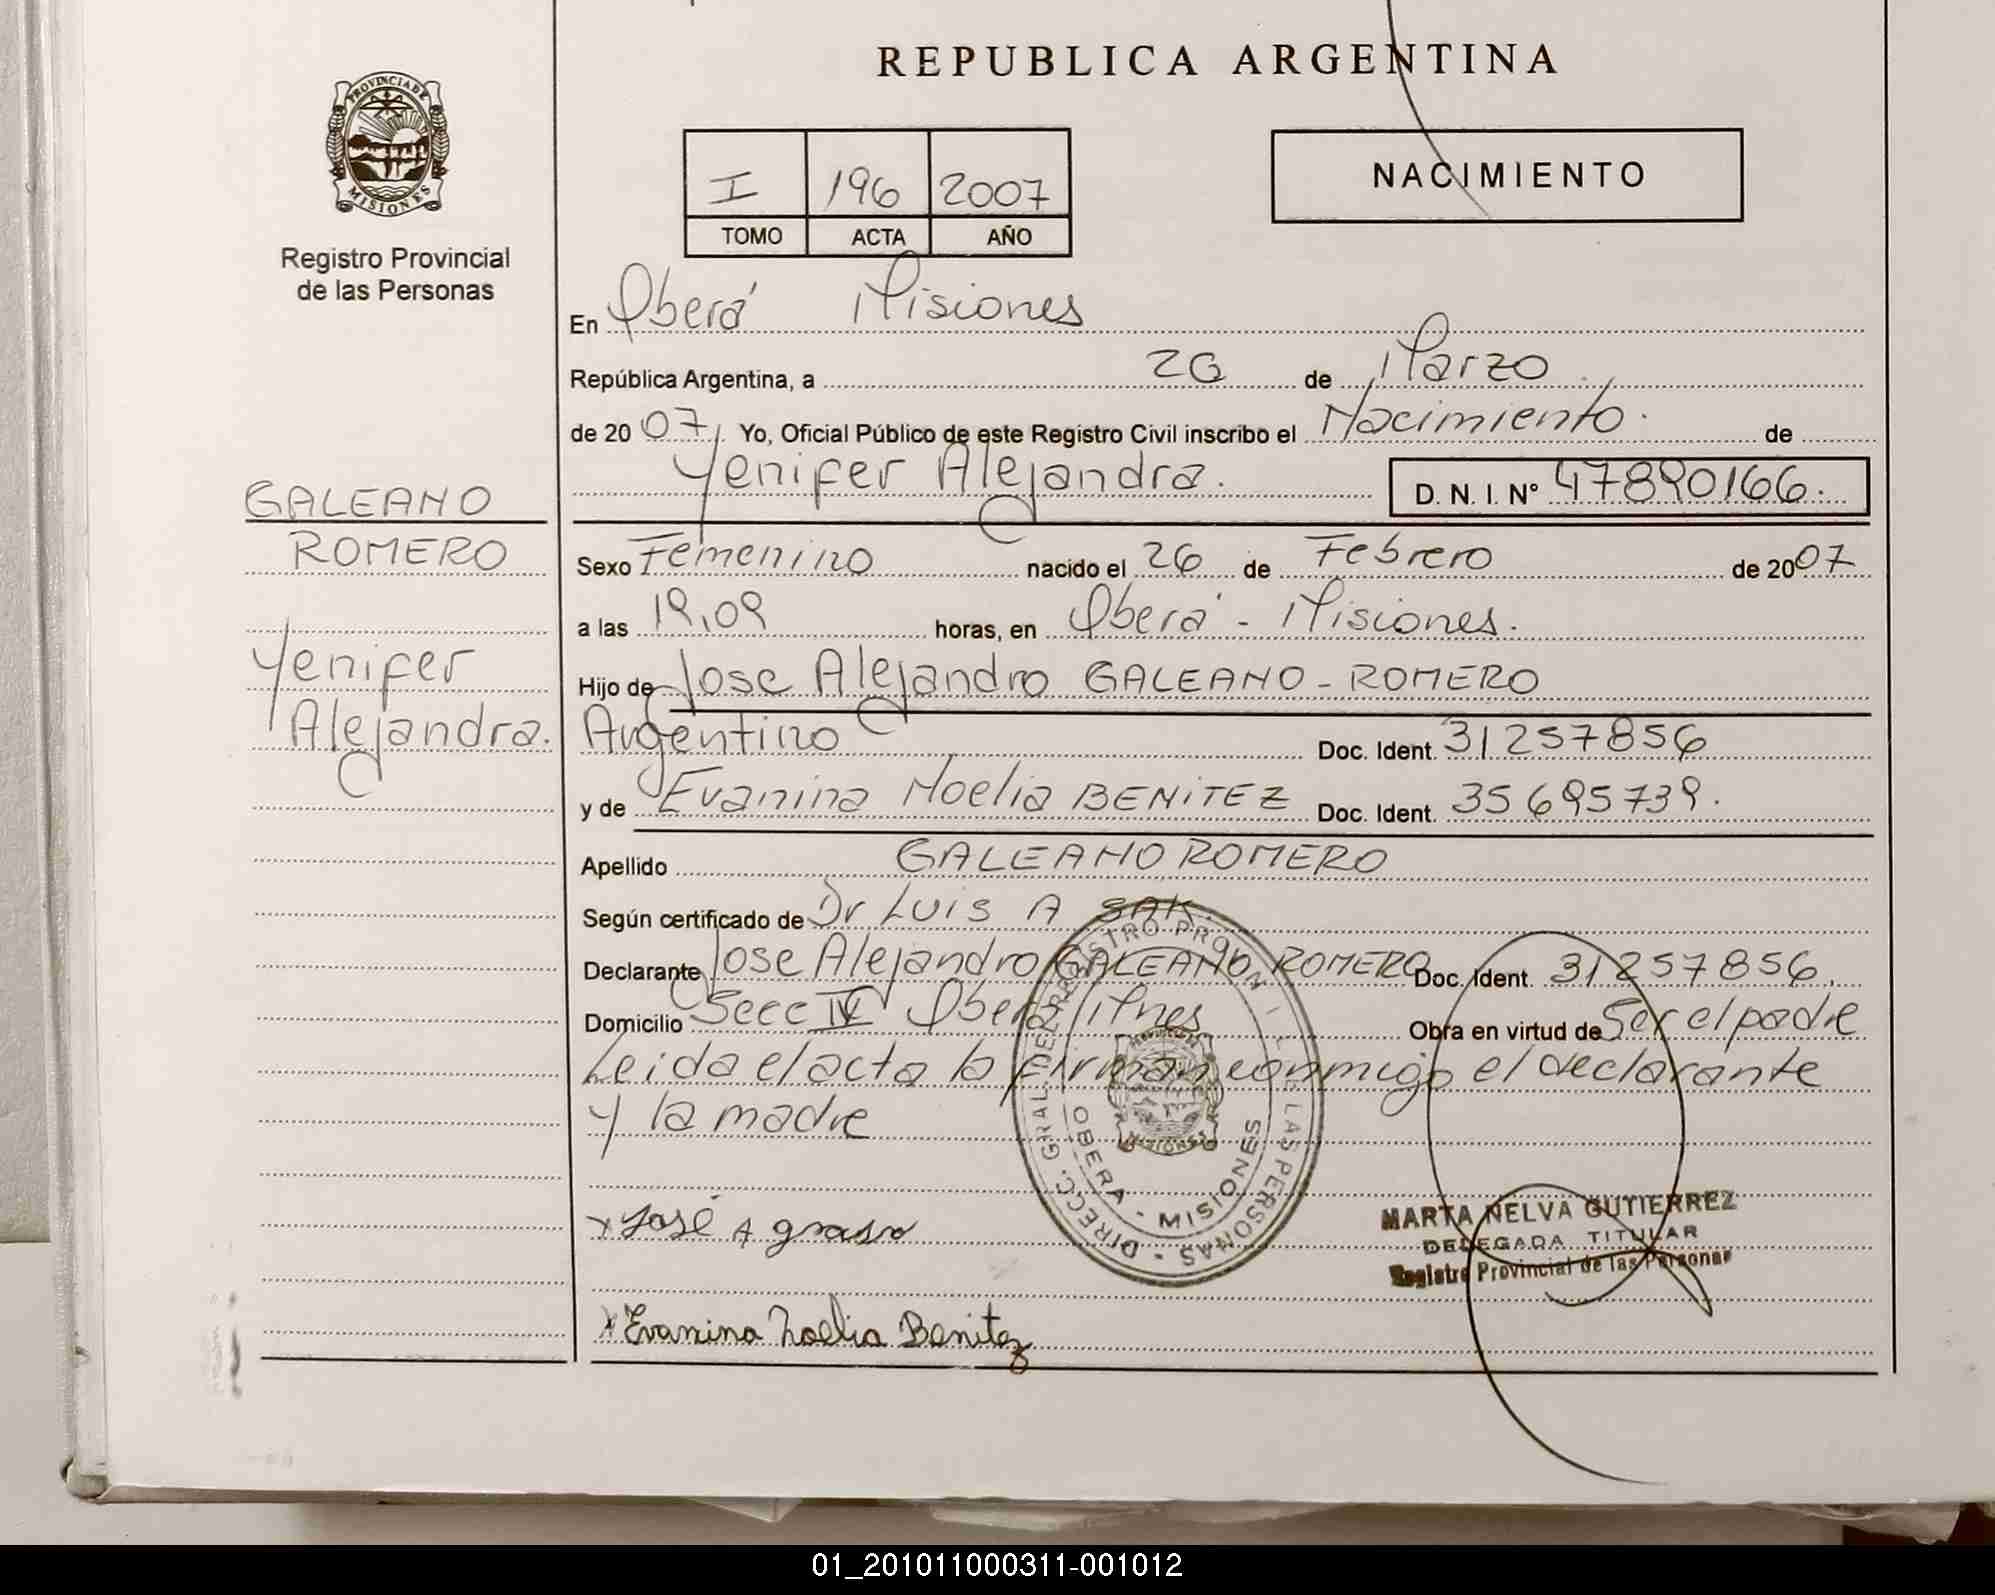 REPUBLICA ARGENTINA
PROVINCIA DE
MISIONES
Registro Provincial
de las Personas
I 196 2007
TOMO ACTA AÑO
NACIMIENTO
En Oberá Misiones
República Argentina, a 26 de Marzo
de 2007, Yo, Oficial Público de este Registro Civil inscribo el Nacimiento. de
Yenifer Alejandra. D. N. I. Nº 47890166.
GALEANO
ROMERO
Yenifer
Alejandra.
Sexo Femenino nacido el 26 de Febrero de 2007
a las 19,09 horas, en Oberá - Misiones.
Hijo de Jose Alejandro GALEANO - ROMERO
Argentino Doc. Ident. 31257856
y de Evanina Noelia BENITEZ Doc. Ident. 35695739.
Apellido GALEANO ROMERO
Según certificado de Dr Luis A SAK.
Declarante Jose Alejandro GALEANO ROMERO Doc. Ident. 31257856.
Domicilio Secc IV Oberá Mnes Obra en virtud de Ser el padre
Leida el acta la firman conmigo el declarante
y la madre
DIRECC. GRAL. DEL REGISTRO PROVINCIAL DE LAS PERSONAS -
MISIONES
OBERA - MISIONES
x José A
x Evanina Noelia Benitez
MARTA NELVA GUTIERREZ
DELEGADA TITULAR
Registro Provincial de las Personas
01_201011000311-001012